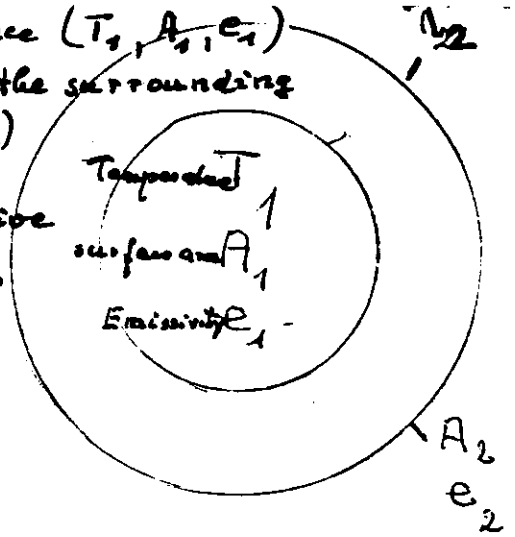 ce (T₁, A₁, e₁)
the surrounding
)
Temperature T₁
surface area A₁
Emissivity e₁
A₂
e₂